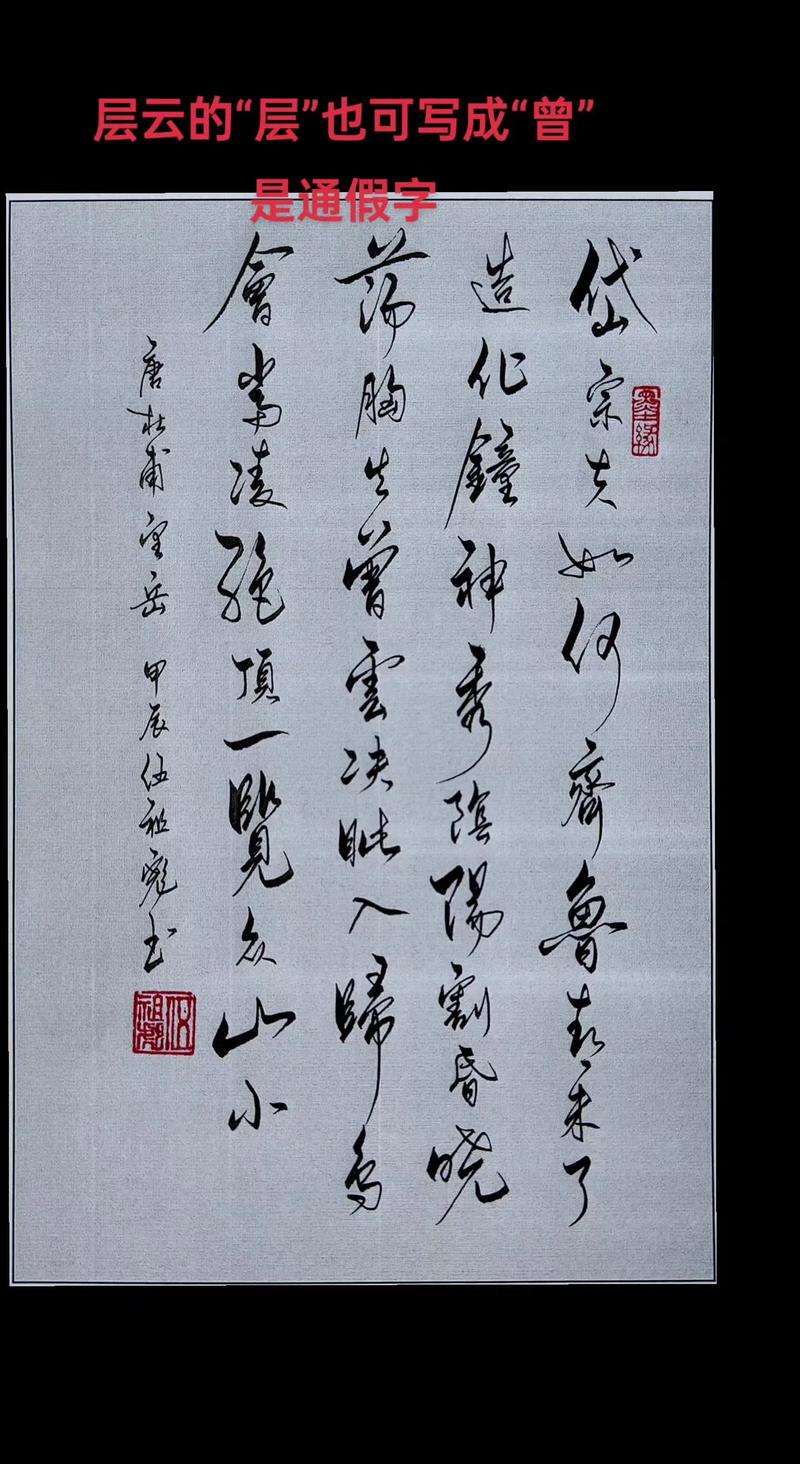 层云的“层”也可写成“曾”
是通假字
岱宗夫如何齊魯青未了
造化鐘神秀陰陽割昏曉
蕩胸生曾雲决眦入歸鳥
會當凌絕頂一覽众山小
唐杜甫望岳 甲辰伍祖彪書
墨缘
伍祖彪